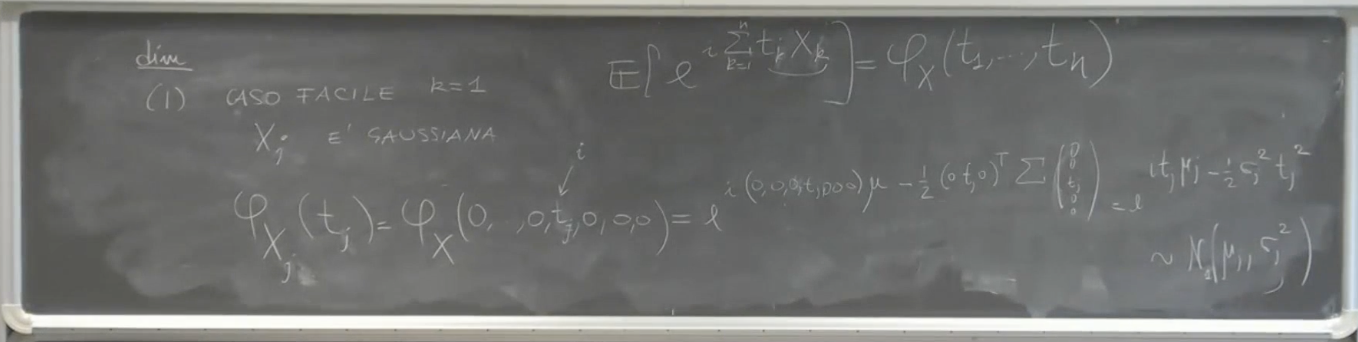 dim
(1) CASO FACILE k=1
X_j E' GAUSSIANA
𝔼[e^{i \sum_{k=1}^{n} t_k X_k}] = φ_X(t_1,...,t_n)
i
φ_{X_j}(t_j) = φ_X(0,..,0,t_j,0,0,0) = e^{i(0,0,0,t_j,0,0,0)μ - \frac{1}{2}(0 t_j 0)^T Σ \begin{pmatrix} 0 \\ 0 \\ t_j \\ 0 \\ 0 \end{pmatrix}} = e^{i t_j μ_j - \frac{1}{2} σ_j^2 t_j^2}
~ N_1(μ_j, σ_j^2)